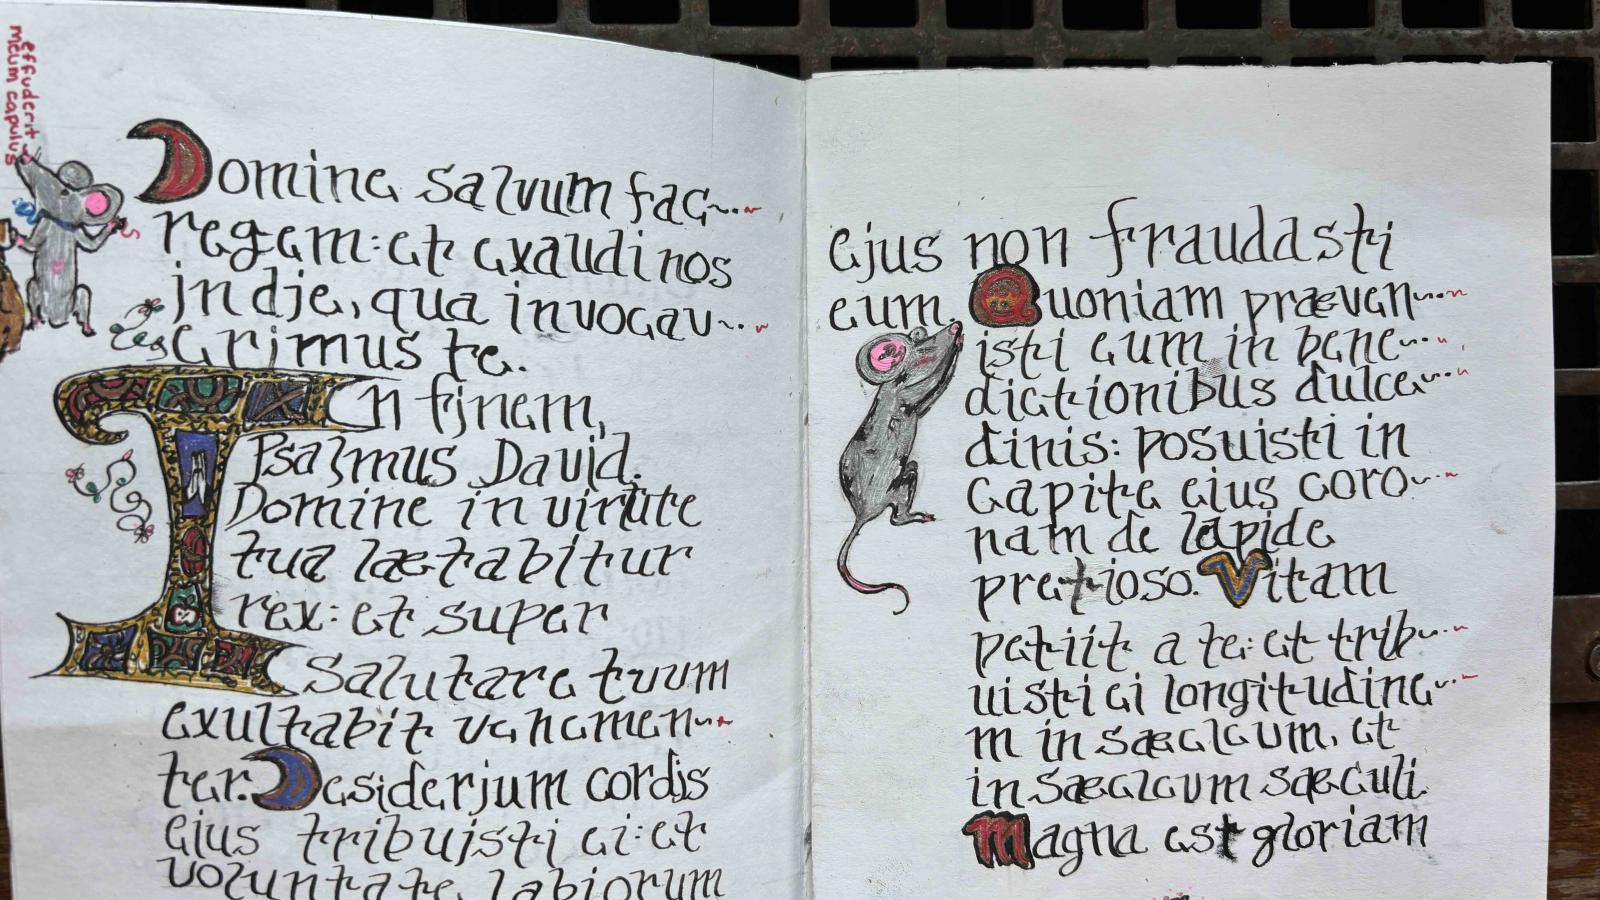 effuderit
meum capulus
Domine salvum fac
regem: et exaudi nos
in die, qua invocav
erimus te.
In finem,
Psalmus David.
Domine in virtute
tua lætabitur
rex: et super
Salutare tuum
exultabit vehemen
ter. Desiderjum cordis
ejus tribujsti ei: et
voluntate labiorum
ejus non fraudasti
eum. Quoniam præven
isti eum in bene
dictionibus dulce
dinis: posuisti in
capite eius coro
nam de lapide
pretioso. Vitam
petiit a te: et trib
uisti ei longitudine
m in sæclcum, et
in sæclcum sæculi.
Magna est gloriam